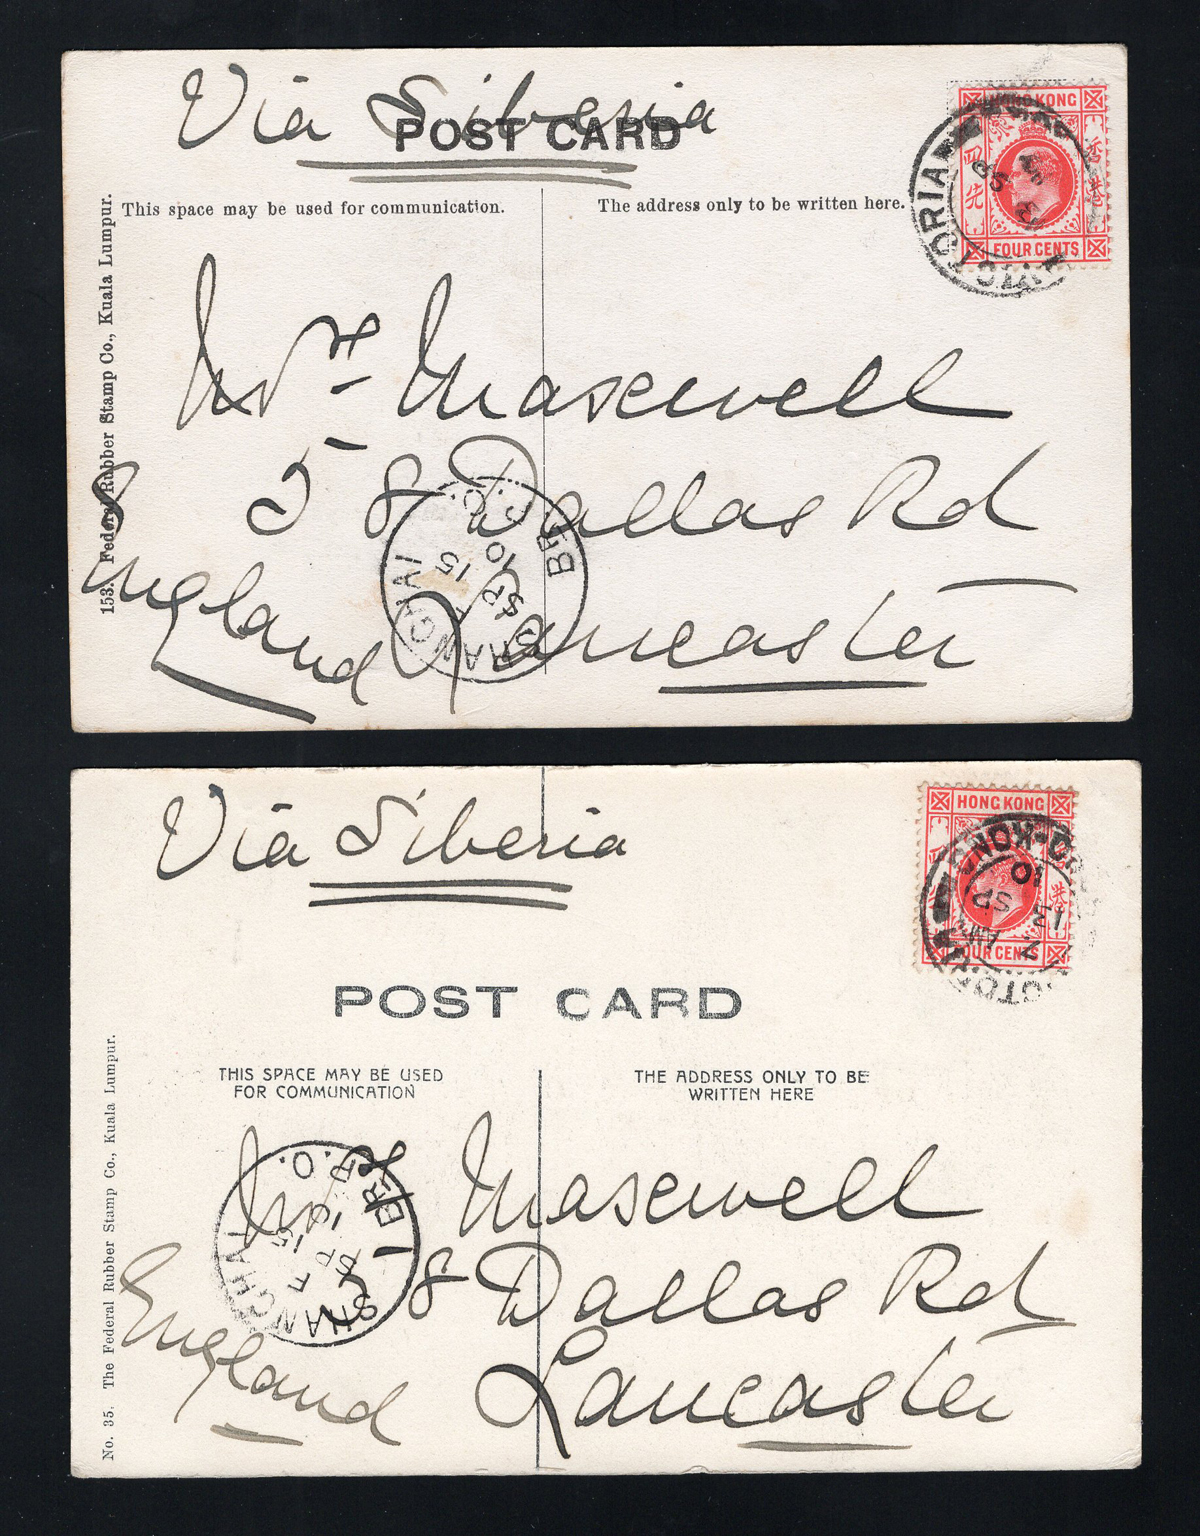 Via Siberia
POST CARD
This space may be used for communication.
The address only to be written here.
HONG KONG
香港
四先
FOUR CENTS
VICTORIA
SP
153. Federal Rubber Stamp Co., Kuala Lumpur.
Mrs Maxwell
58 Dallas Rd
Lancaster
England
SHANGHAI BR. P.O.
F
SP 15
10
Via Siberia
HONG KONG
港
FOUR CENTS
HONG-KONG
10
SP
13
7 AM
POST CARD
THIS SPACE MAY BE USED
FOR COMMUNICATION
THE ADDRESS ONLY TO BE
WRITTEN HERE
No. 35. The Federal Rubber Stamp Co., Kuala Lumpur.
Mrs Maxwell
58 Dallas Rd
Lancaster
England
SHANGHAI BR. P.O.
F
SP 15
10